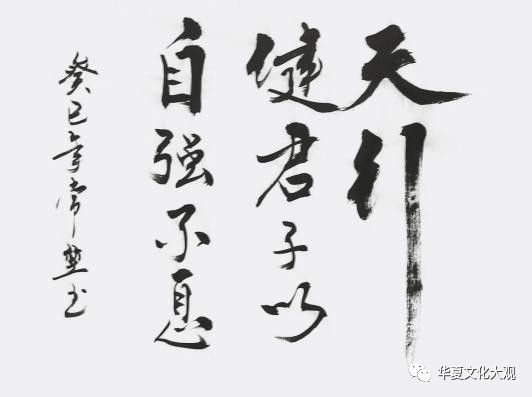 天行
健君子以
自强不息
癸巳年常书
华夏文化大观